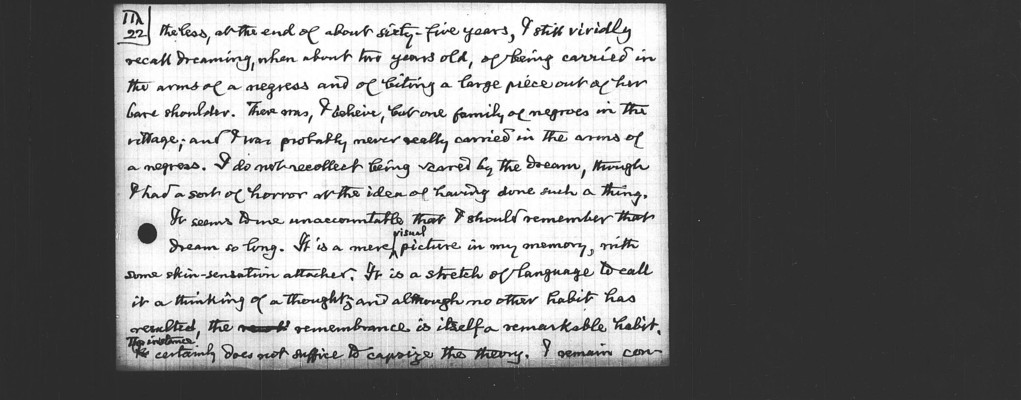 IIλ
22
theless, at the end of about sixty-five years, I still vividly
recall dreaming, when about two years old, of being carried in
the arms of a negress and of biting a large piece out of her
bare shoulder. There was, I believe, but one family of negroes in the
village; and I was probably never really carried in the arms of
a negress. I do not recollect being scared by the dream, though
I had a sort of horror at the idea of having done such a thing.
It seems to me unaccountable that I should remember that
visual
dream so long. It is a mere picture in my memory, with
some skin-sensation attached. It is a stretch of language to call
it a thinking of a thought; and although no other habit has
resulted, the remembrance is itself a remarkable habit.
This instance
certainly does not suffice to capsize the theory. I remain con-